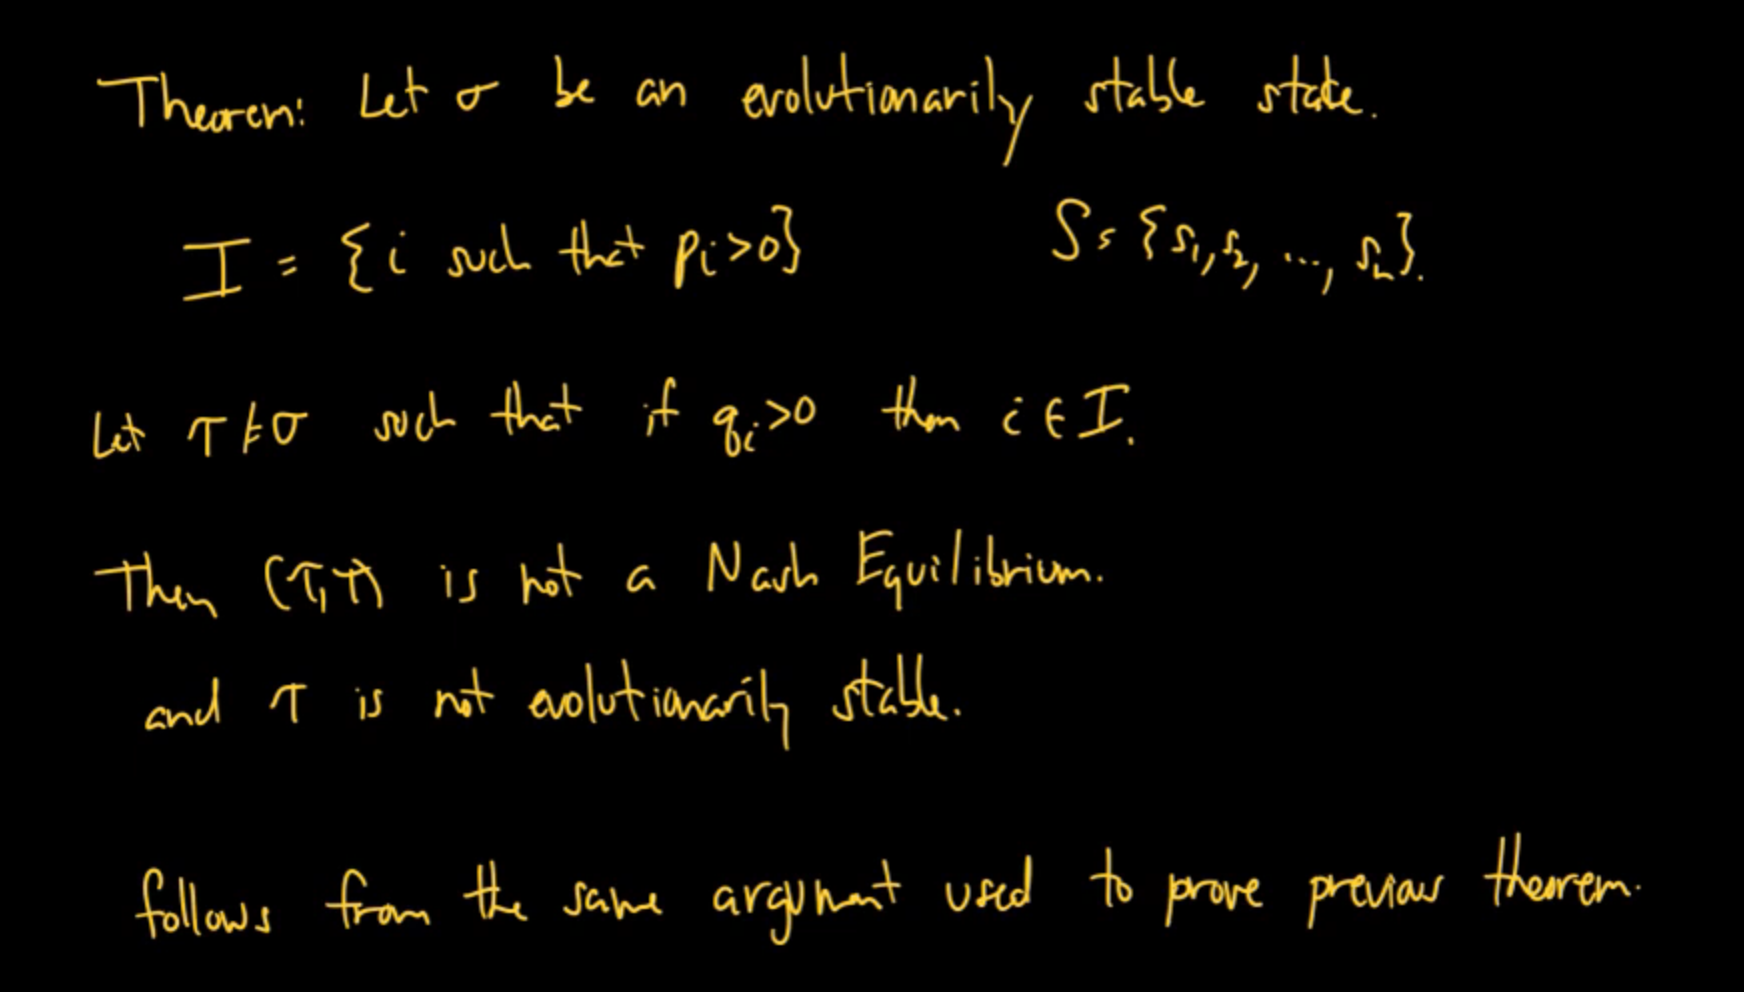 Theorem: Let σ be an evolutionarily stable state.
I = {i such that pᵢ>0} S = {s₁, s₂, ..., sₙ}.
Let τ ≠ σ such that if qᵢ>0 then i ∈ I.
Then (τ,τ) is not a Nash Equilibrium.
and τ is not evolutionarily stable.
follows from the same argument used to prove previous theorem.